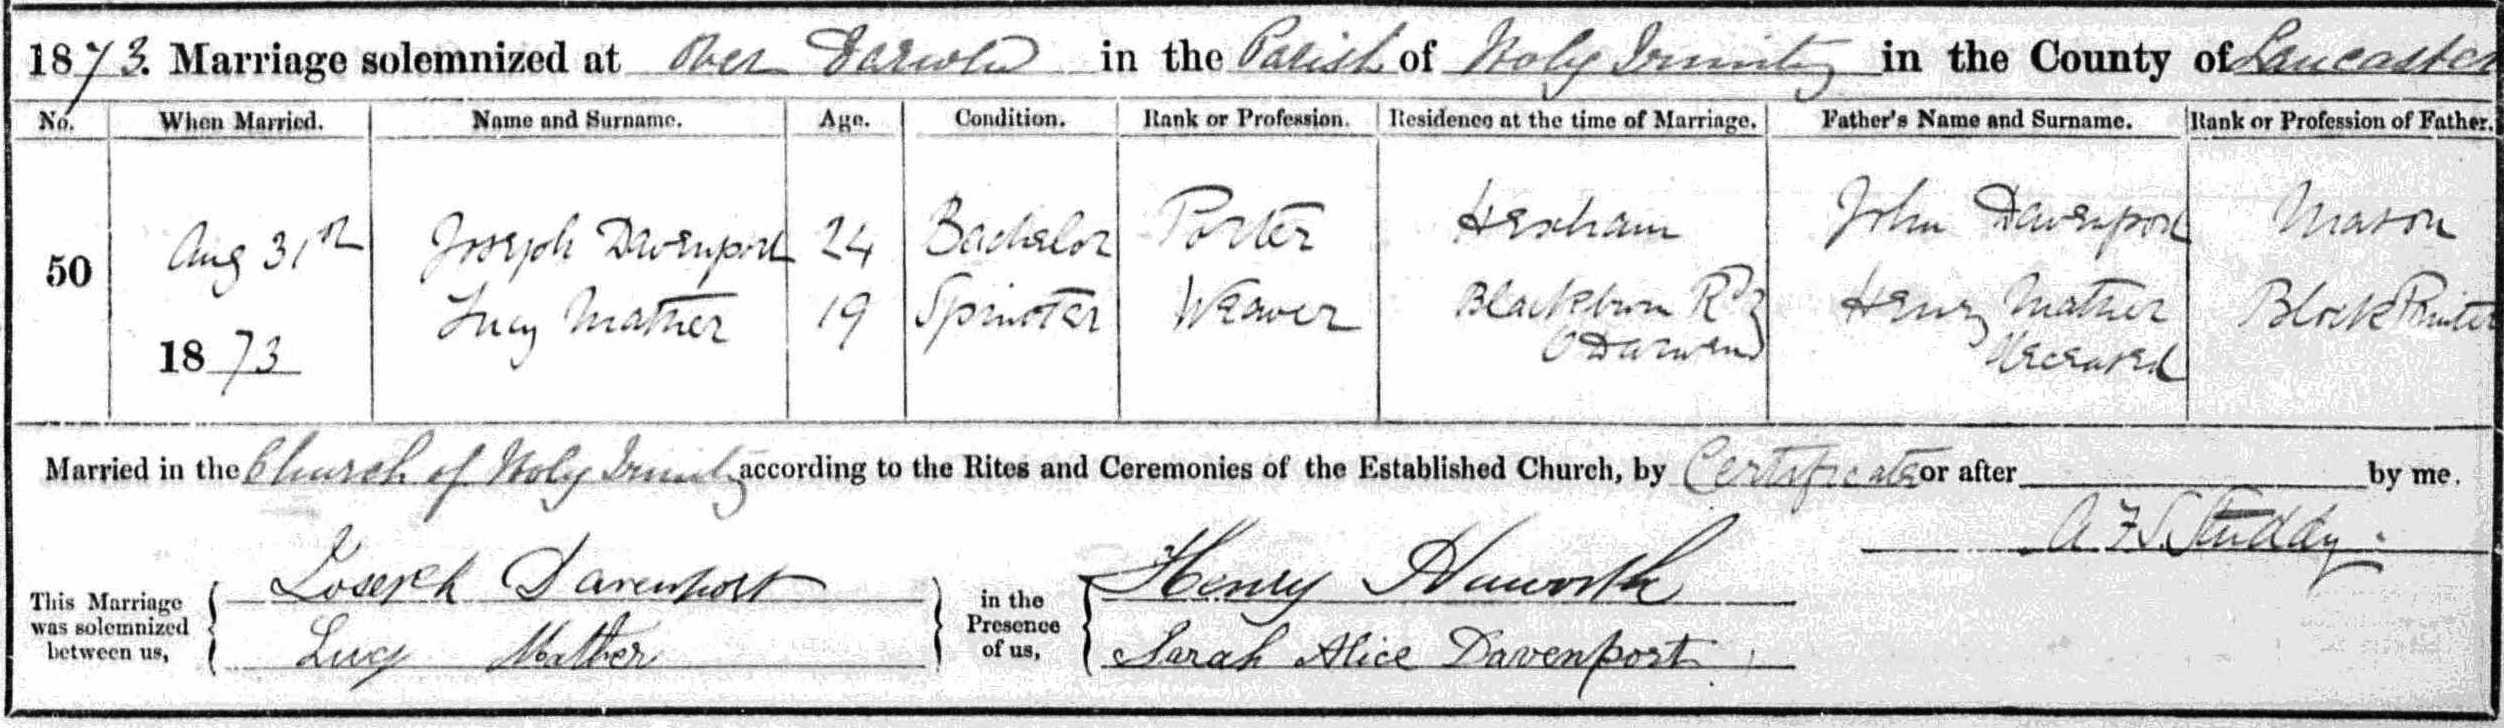 1873. Marriage solemnized at Over Darwen in the Parish of Holy Trinity in the County of Lancaster
No. When Married. Name and Surname. Age. Condition. Rank or Profession. Residence at the time of Marriage. Father's Name and Surname. Rank or Profession of Father.
Aug 31st Joseph Davenport 24 Bachelor Porter Hexham John Davenport Mason
50
Lucy Mather 19 Spinster Weaver Blackburn Rd Henry Mather Block Printer
1873 O Darwen Deceased
Married in the Church of Holy Trinity according to the Rites and Ceremonies of the Established Church, by Certificate or after by me.
A F S Studdy.
This Marriage was solemnized between us, Joseph Davenport
Lucy Mather
in the Presence of us, Henry Haworth
Sarah Alice Davenport